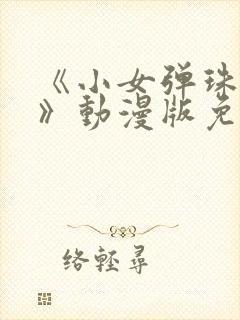 《小女弹珠
》動漫版免
络輕尋